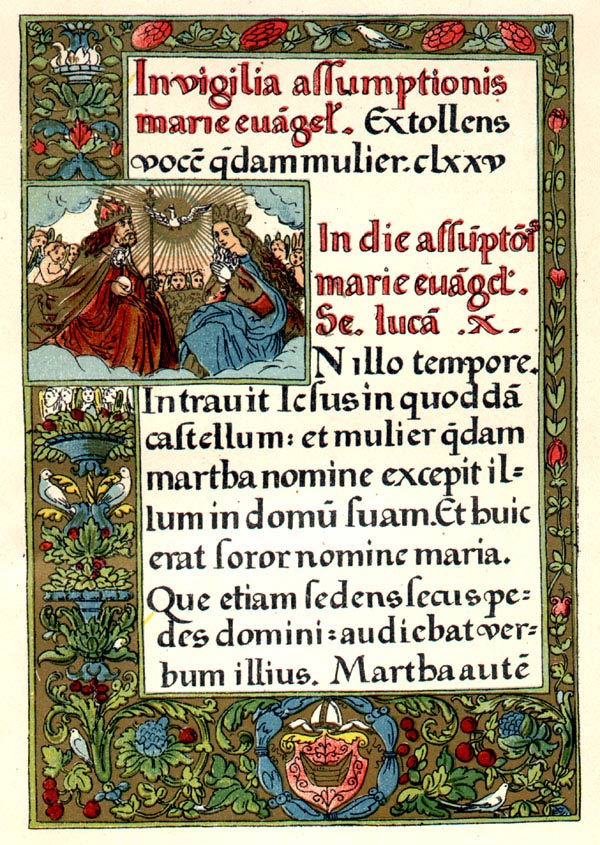 In vigilia assumptionis
marie euāgeł. Extollens
vocē q̄dam mulier. clxxv
In die assūptōis
marie euāgeł.
Se. lucā .x.
N illo tempore.
Intrauit Iesus in quoddā
castellum: et mulier q̄dam
martha nomine excepit il=
lum in domū suam. Et huic
erat soror nomine maria.
Que etiam sedens secus pe=
des domini: audiebat ver=
bum illius. Martha autē